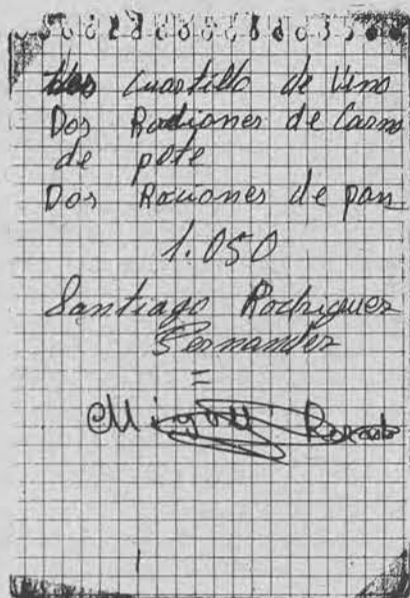 cuartillo de Vino
Dos Radiones de Carne
de pote
Dos Raciones de pan
1.050
Santiago Rodriguez
Fernandez
=
Miguel